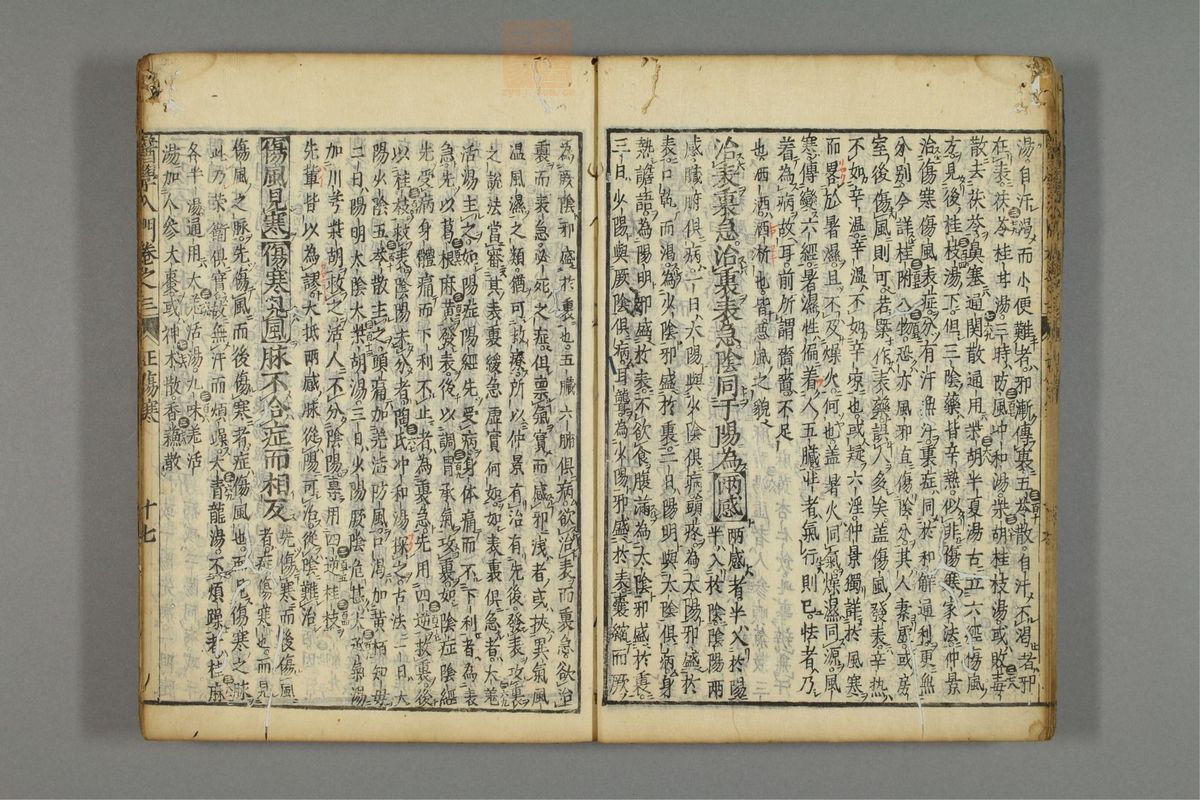 湯自汗渴而小便難者邪漸傳裏五苓散自汗不渴者邪
在表茯苓桂甘湯三時防風冲和湯柴胡桂枝湯或敗毒
散去茯苓鼻塞通関散通用柴胡半夏湯古云六經傷風
方見後桂枝湯下但三陰藥皆辛熱似非傷寒家法仲景
治傷寒傷風表症分有汗無汗裏症同於和解通利更無
分别今詳桂附八物恐亦風邪直傷陰分其人素虛或房
室後傷風則可若擧作表藥誤人多矣盖傷風發表辛熱
不如辛温辛温不如辛凉也或疑六淫仲景獨詳於風寒
而畧於暑濕且不及燥火何也盖暑火同氣燥濕同源風
寒傳變六經暑濕性偏着人五臟壮者氣行則已怯者乃
着為病故耳前所謂嗇嗇不足
也洒洒淅淅也皆惡風之貌
治表裏急治裏表急陰同于陽為兩感
兩感者半入於陽
半入於陰陰陽兩
感臟腑俱病一日太陽與少陰俱病頭疼為太陽邪盛於
表口乾而渴為少陰邪盛於裏二日陽明與太陰俱病身
熱譫語為陽明邪盛於表不欲食腹滿為太陰邪盛於裏
三日少陽與厥陰俱病耳聾為少陽邪盛於表囊縮而厥
為厥陰邪盛於裏也五臟六腑俱病欲治表而裏急欲治
裏而表急必死之症但禀氣實而感邪淺者或挾異氣風
温風濕之類猶可救療所以仲景有治有先後發表攻裏
之說法當審其表裏緩急虛實何如如表裏俱急者大羌
活湯主之如陽症陽經先受病身体痛而不下利者為表
急先以葛根麻黄發表後以調胃承氣攻裏如陰症陰經
先受病身體痛而下利不止者為裏急先用四逆救裏後
以桂枝救表陰陽未分者陶氏冲和湯探之古法一日太
陽少陰五苓散主之頭痛加羌活防風口渴加黄栢知母
二日陽明太陰大柴胡湯三日少陽厥陰危甚大承氣湯
加川芎柴胡救之活人不分陰陽專用四逆桂枝
先輩皆以為謬大抵兩感脉從陽可治從陰難治
傷風見寒傷寒見風脉不合症而相反
先傷寒而後傷風
者症傷寒也而見
傷風之脉先傷風而後傷寒者症傷風也而見傷寒之脉
此乃荣衛俱實故無汗而煩燥大青龍湯不煩躁者桂麻
各半湯通用大羌活湯九味羌活
湯加人參大棗或神术散香蘓散
醫學入門卷之三
正傷寒
十七